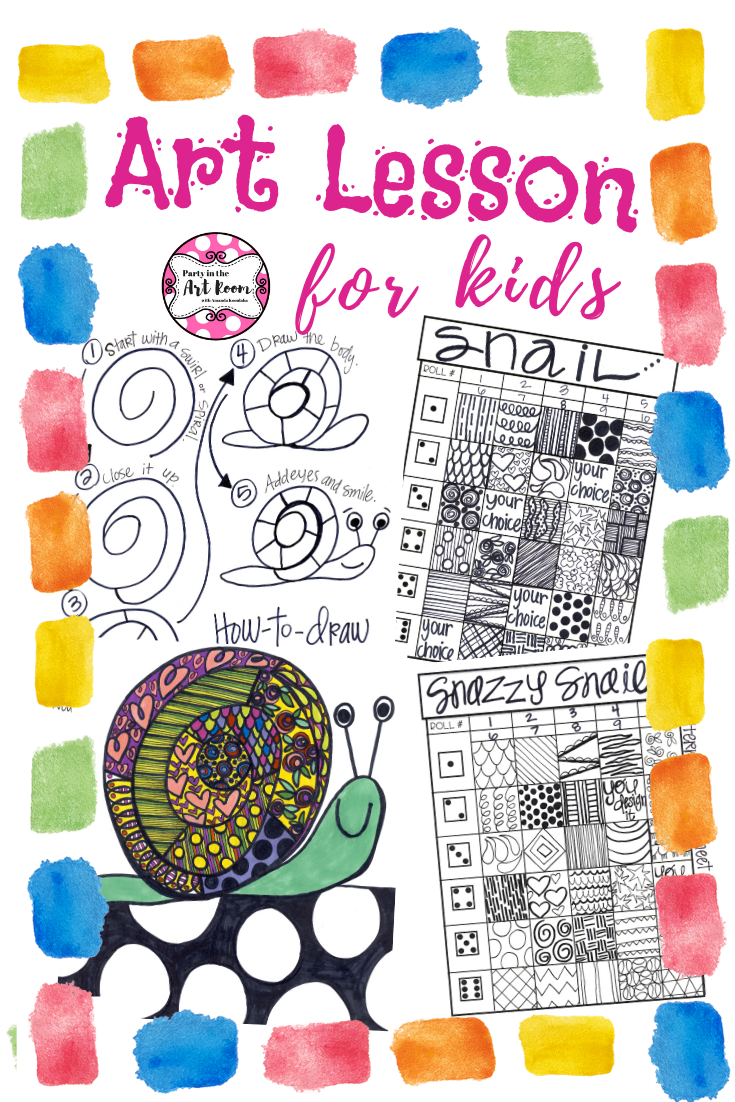 Art Lesson
for kids
Party in the
Art Room
1 Start with a swirl or spiral
2 Close it up
3
4 Draw the body.
5 Add eyes and smile.
How-to-draw
snail...
ROLL # 1 2 3 4 5
6 7 8 9 10
your choice
your choice
your choice
your choice
snazzy snail
ROLL # 1 2 3 4
6 7 8 9
you design it
you